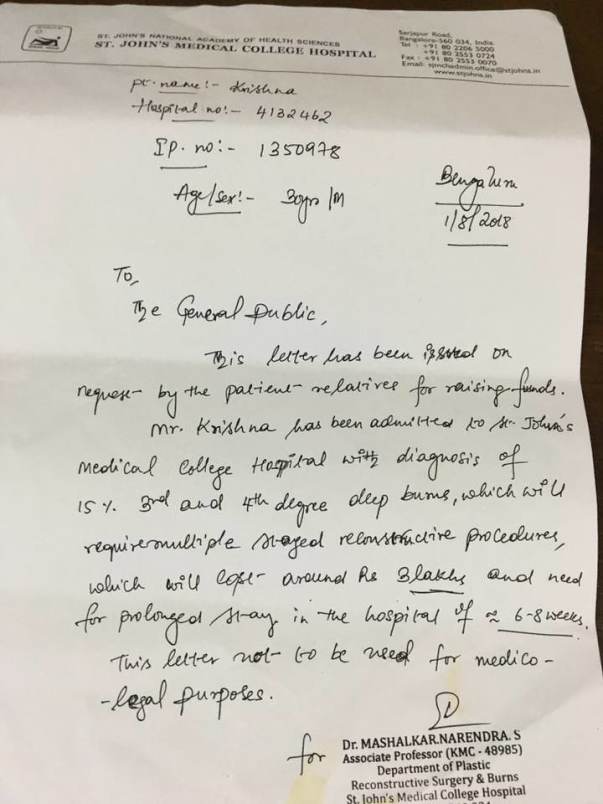 ST. JOHN'S NATIONAL ACADEMY OF HEALTH SCIENCES
ST. JOHN'S MEDICAL COLLEGE HOSPITAL
Sarjapur Road,
Bangalore-560 034, India.
Tel : +91 80 2206 5000
+91 80 2553 0724
Fax : +91 80 2553 0070
Email: sjmchadmin.office@stjohns.in
www.stjohns.in
pt. name:- Krishna
Hospital no:- 4132462
Ip. no:- 1350978
Age/sex:- 30yrs/M
1/8/2018
To,
The General Public,
This letter has been issued on
request by the patient relatives for raising funds.
Mr. Krishna has been admitted to St. John's
Medical College Hospital with diagnosis of
15% 3rd and 4th degree deep burns, which will
require multiple staged reconstructive procedures,
which will cost around Rs 3 lakhs and need
for prolonged stay in the hospital of ≈ 6-8 weeks.
This letter not to be used for medico-
-legal purposes.
for
Dr. MASHALKAR.NARENDRA. S
Associate Professor (KMC - 48985)
Department of Plastic
Reconstructive Surgery & Burns
St. John's Medical College Hospital